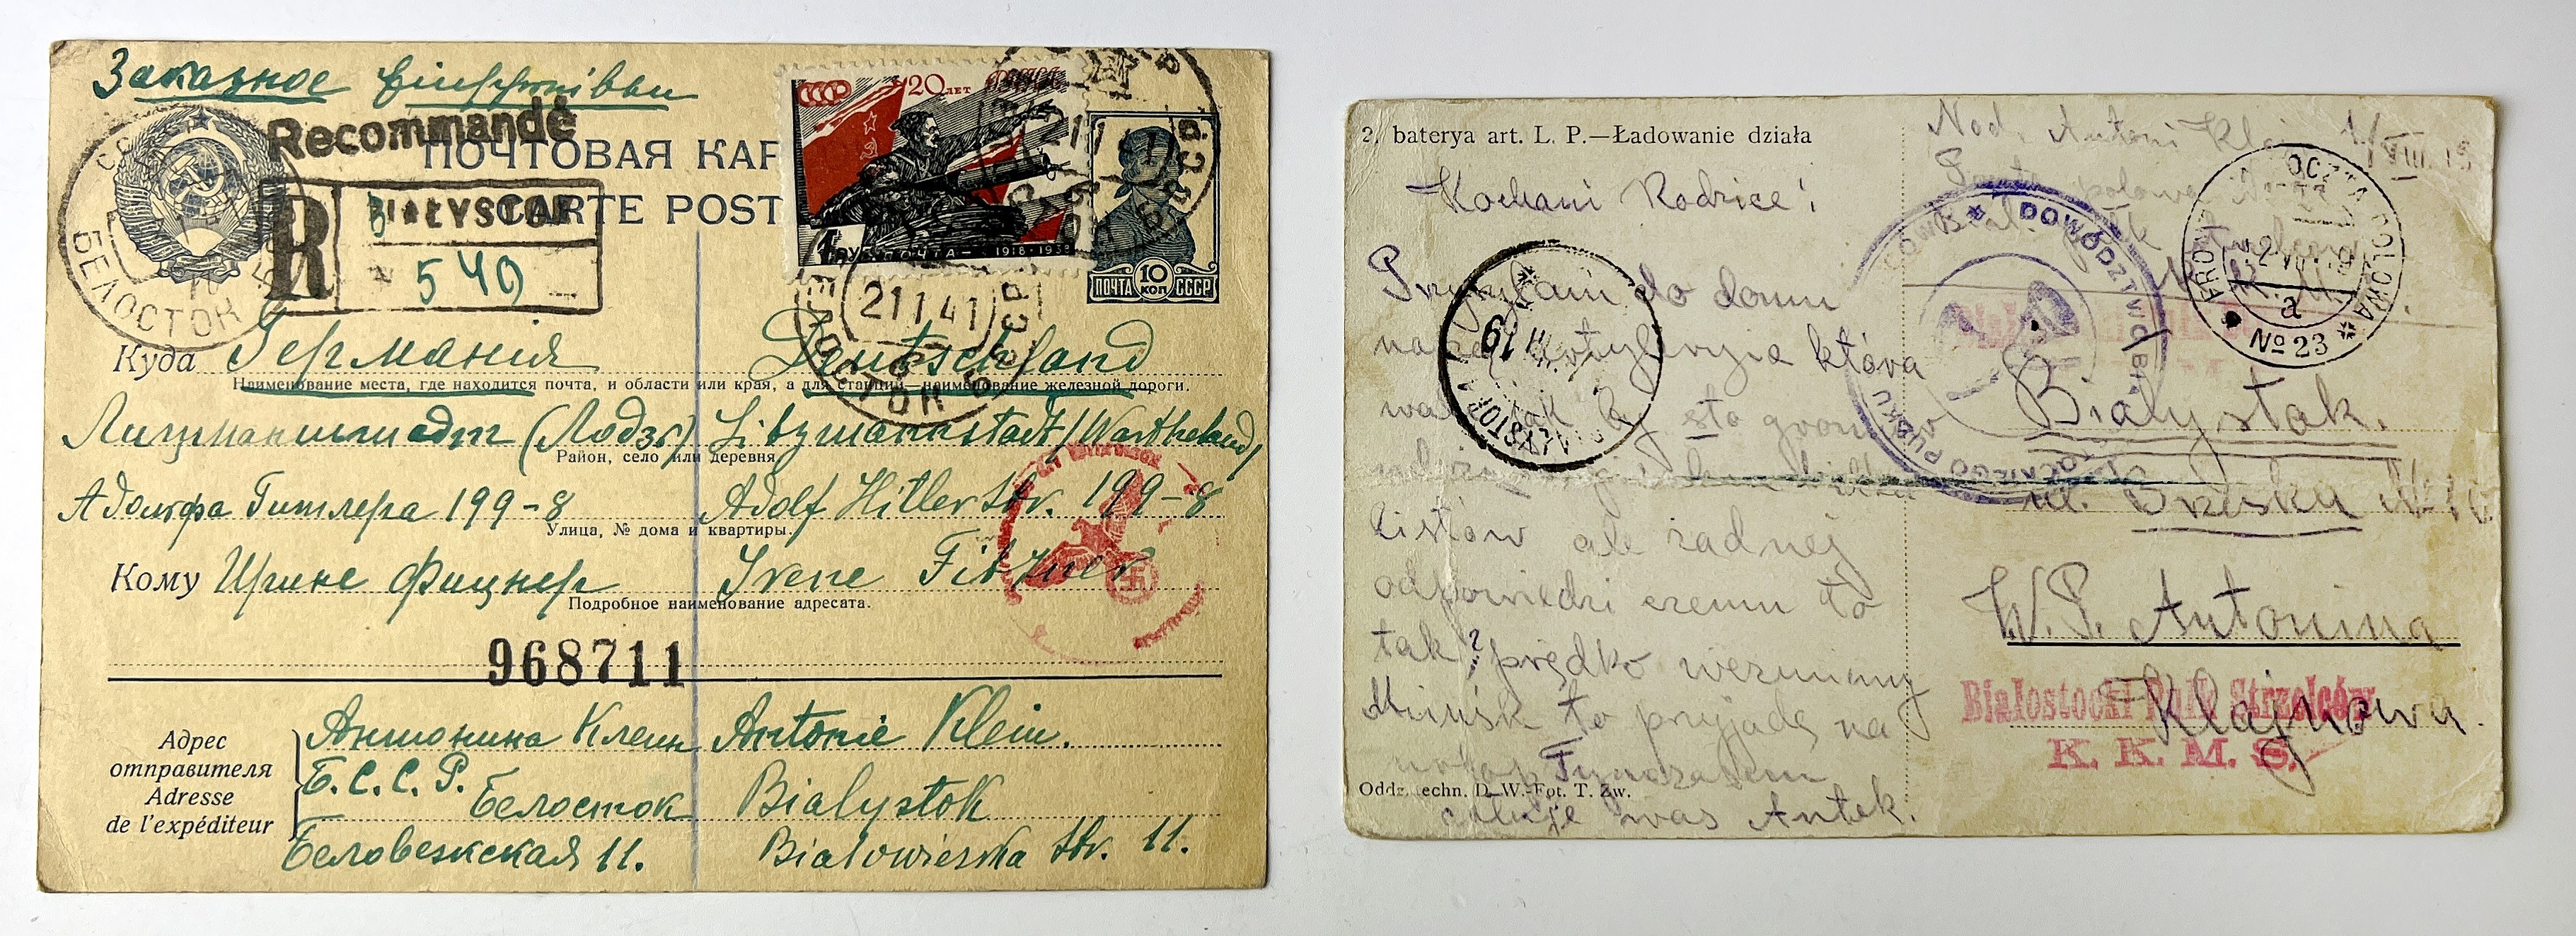 Заказное Einschreiben
Recommandé
ПОЧТОВАЯ КАР
CARTE POST
СССР 20 лет
1 РУБ ПОЧТА 1918-1938
10 КОП
ПОЧТА СССР
R BIAŁYSTOK
549
БЕЛОСТОК
21 1 41
БЕЛОСТОК
Куда Германия Deutschland
Наименование места, где находится почта, и области или края, а для станций—наименование железной дороги.
Лицманштадт (Лодзь) Litzmannstadt/Wartheland/
Район, село или деревня.
Адольфа Гитлера 199-8 Adolf Hitler Str. 199-8
Улица, № дома и квартиры.
Кому Ирине Фицнер Irene Fitzner
Подробное наименование адресата.
968711
Адрес отправителя
Adresse de l'expéditeur
Антонина Клеин Antonie Klein.
Б.С.С.Р.
Белосток Bialystok
Беловежская 11. Bialowieska Str. 11.
2. baterya art. L. P.—Ładowanie działa
Kochani Rodzice!
Przysyłam do domu
naszą artyleryię która
wali jak by sto gromów
listów ale żadnej
odpowiedzi czemu to
tak? prędko weźmiemy
Mińsk to przyjadę na
urlop Tymczasem
całuję was Antek.
Oddz. techn. D. W.-Fot. T. Zw.
Nad. Antoni Klaj
1/VIII 19
POCZTA POLOWA
FRONT
a
№ 23
DOWÓDZTWO
PUŁKU
Białystok.
ul. Brzeska №
W.P. Antonina
Klajnowa.
Białostocki Pułk Strzelców
K. K. M. S.